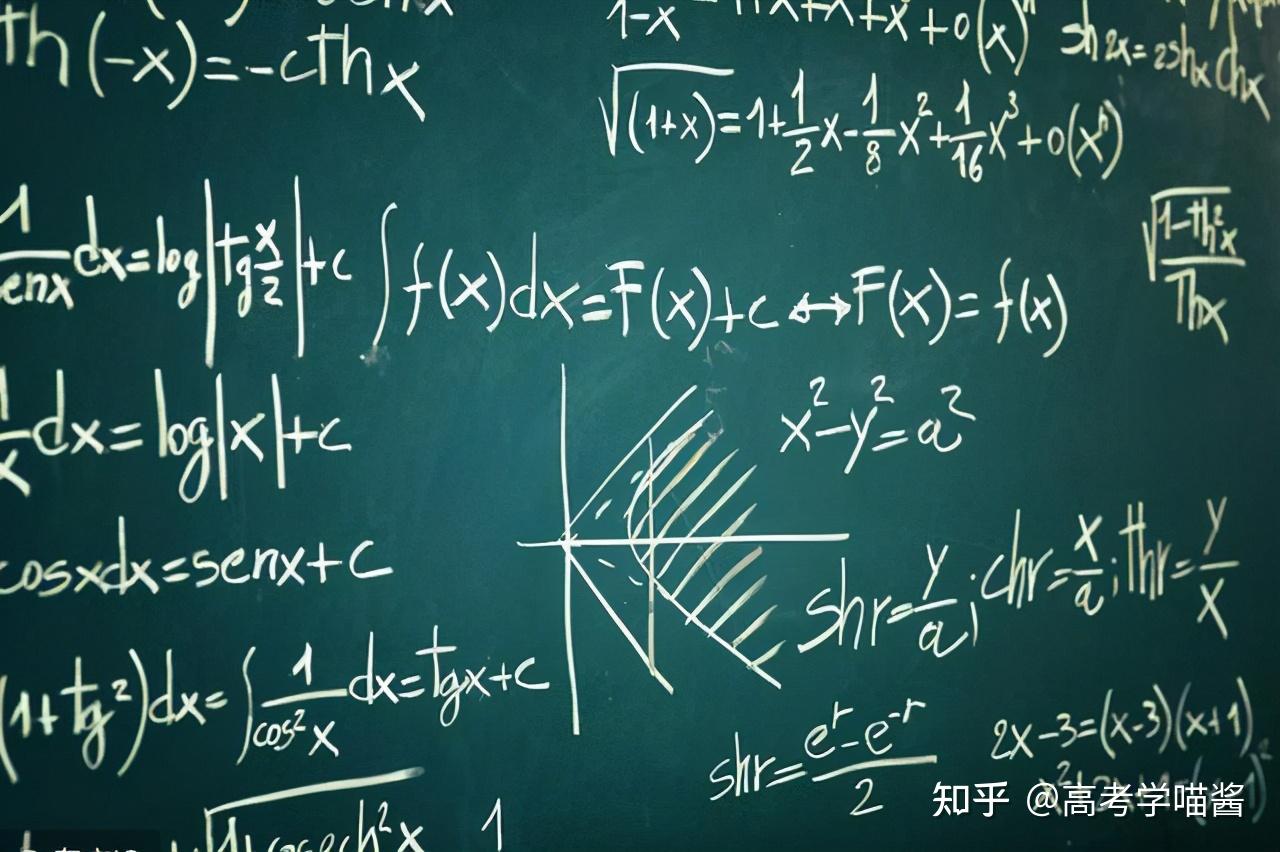 th(-x)=-cthx
1-x
+x+x+0(x)ⁿ
sh2x=2shxchx
√(1+x)=1+1/2x-1/8x²+1/16x³+0(xⁿ)
1/senx dx=log|tg x/2|+c
∫f(x)dx=F(x)+c↔F(x)=f(x)
√1-th²x/Thx
1/x dx=log|x|+c
x²-y²=a²
cosxdx=senx+c
shr=y/a;chr=x/a;thr=y/x
(1+tg²)dx=∫1/cos²x dx=tgx+c
shr=eʳ-e⁻ʳ/2
2x-3=(x-3)(x+1)
1
知乎 @高考学喵酱